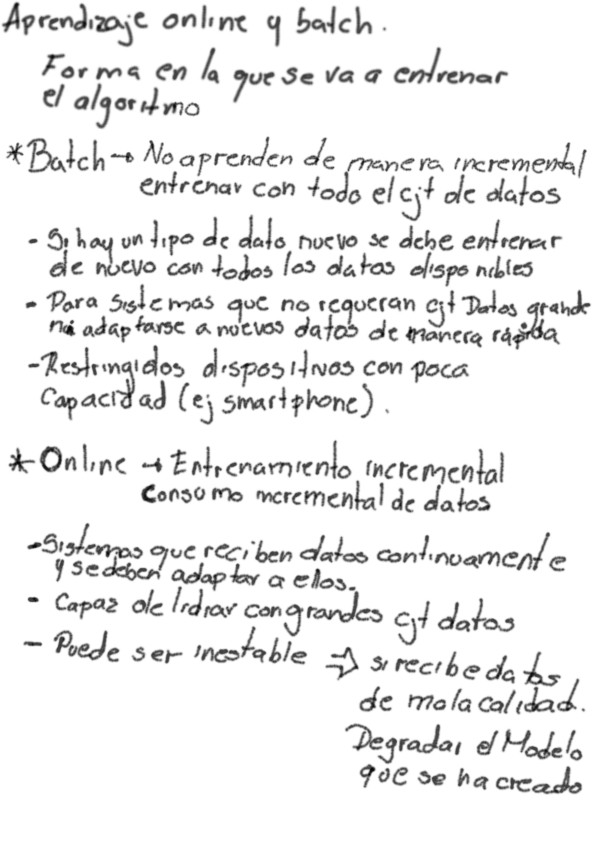 Aprendizaje online y batch.
Forma en la que se va a entrenar
el algoritmo
*Batch → No aprenden de manera incremental
entrenar con todo el cjt de datos
- Si hay un tipo de dato nuevo se debe entrenar
de nuevo con todos los datos disponibles
- Para sistemas que no requeran cjt Datos grande
ni adaptarse a nuevos datos de manera rápida
- Restringidos dispositivos con poca
Capacidad (ej smartphone).
*Online → Entrenamiento incremental
Consumo incremental de datos
- Sistemas que reciben datos continuamente
y se deben adaptar a ellos.
- Capaz de lidiar con grandes cjt datos
- Puede ser inestable ⇒ si recibe datos
de mala calidad.
Degradar el Modelo
que se ha creado